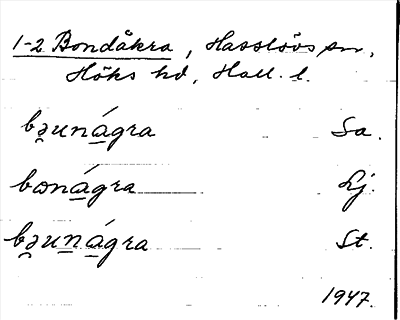 1-2 Bondåkra, Hasslövs sn,
Höks hd, Hall. l.
bə̯unágra Sa.
bonágra Lj.
bə̯unágra St.
1947.